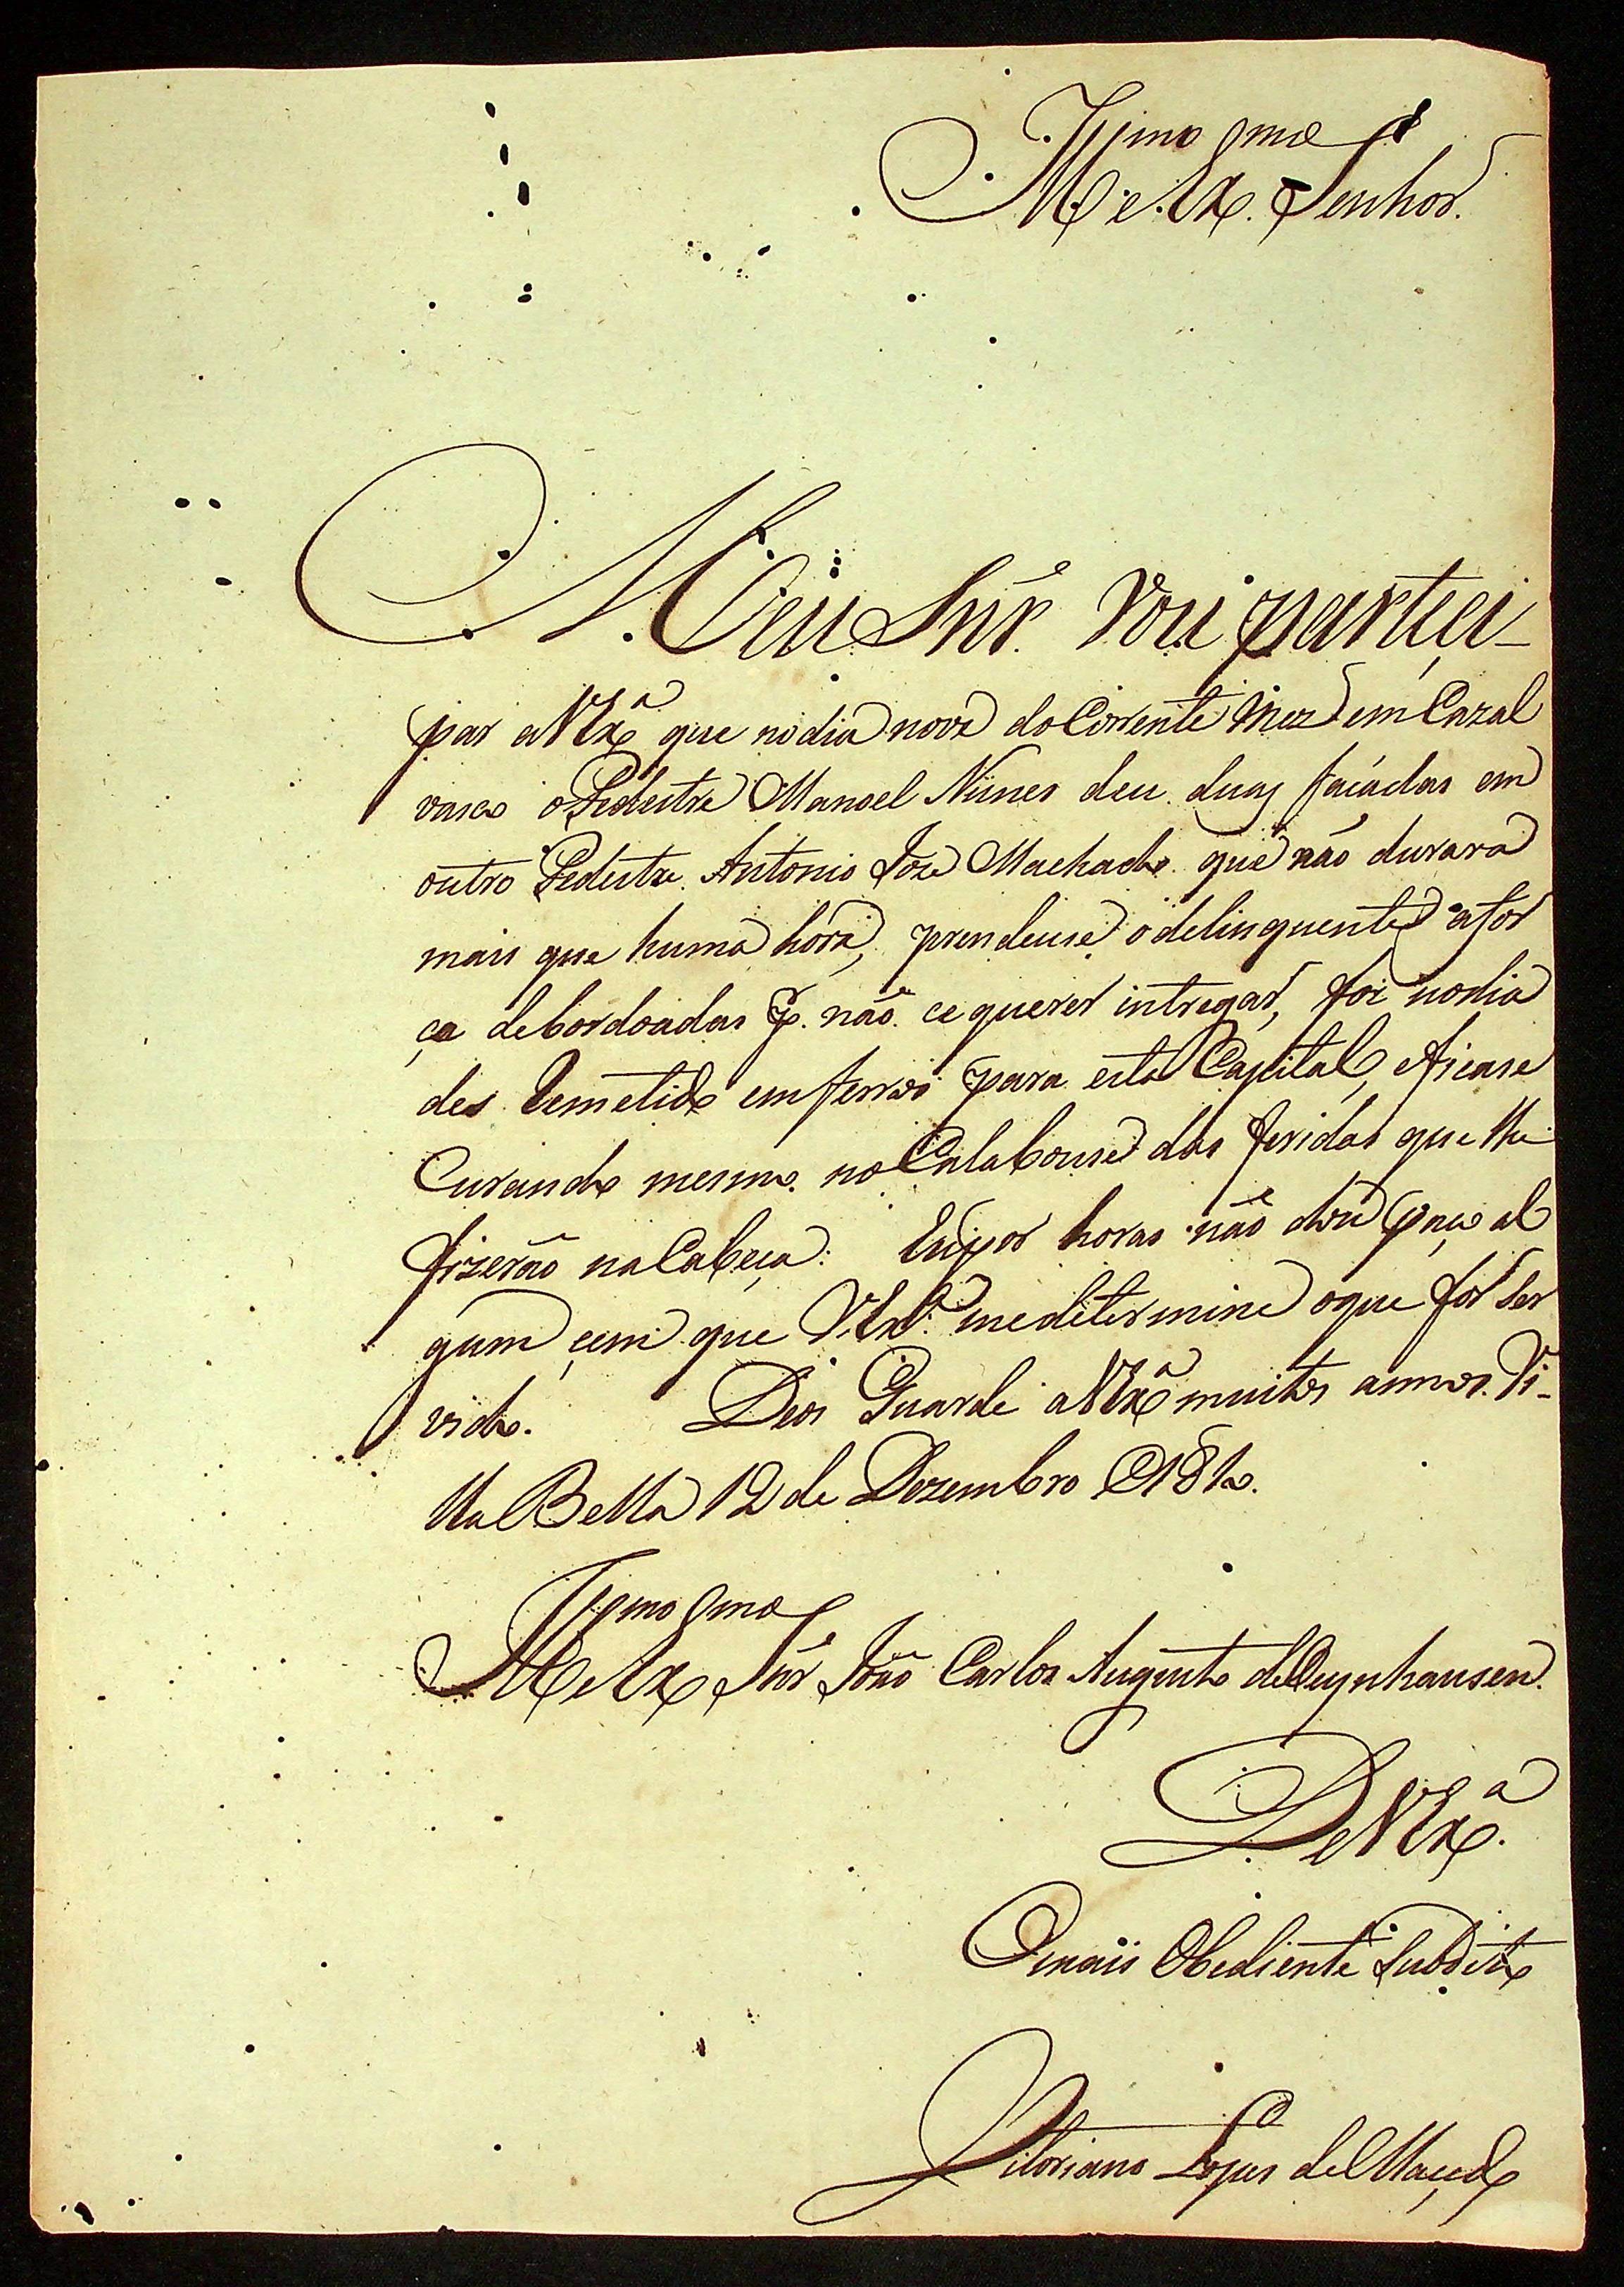 Illmo e Exmo Senhor.
Meu Snr. Vou partici-
par a VExª que no dia nove do Corrente Mez em Cazal
vasco o Pedestre Manoel Nunes deu duas facádas em
outro Pedestre Antonio Joze Machado que não durara
mais que huma hóra, prendeuse o delinquente a for
ça de bordoadas p. não ce querer intregar, foi no dia
des Remetido em ferros para esta Capital, e ficase
Curando mesmo no Calabouse das feridas que lhe
fizerão na Cabeça: Eu por horas não dou paço al
gum cem que V.Exª me determine o que for Ser
vido. Deos Guarde a VExª muitos annos. Vi-
lla Bella 12 de Dezembro de 181
Illmo e Exmo Snr João Carlos Augusto de Oeynhausen.
De VExª.
O mais Obediente Subdito
Vitoriano Lopes de Macedo